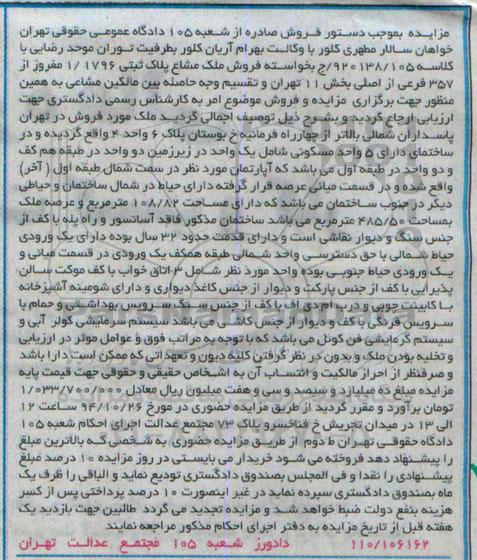 مزایده بموجب دستور فروش صادره از شعبه ۱۰۵ دادگاه عمومی حقوقی تهران
خواهان سالار مطهری کلور با وکالت بهرام آریان کلور بطرفیت توران موحد رضایی با
کلاسه ۹۲۰۱۳۸/۱۰۵/ج بخواسته فروش ملک مشاع پلاک ثبتی ۱/۱۷۹۶ مفروز از
۳۵۷ فرعی از اصلی بخش ۱۱ تهران و تقسیم وجه حاصله بین مالکین مشاعی به همین
منظور جهت برگزاری مزایده و فروش موضوع امر به کارشناس رسمی دادگستری جهت
ارزیابی ارجاع گردید و بشرح ذیل توصیف اجمالی گردید ملک مورد فروش در تهران
پاسداران شمالی بالاتر از چهارراه فرمانیه خ بوستان پلاک ۶ واحد ۴ واقع گردیده و در
ساختمان دارای ۵ واحد مسکونی شامل یک واحد در زیرزمین دو واحد در طبقه هم کف
و دو واحد در طبقه اول می باشد که آپارتمان مورد نظر در سمت شمال طبقه اول (آخر)
واقع شده و در قسمت میانی عرصه قرار گرفته دارای حیاط در شمال ساختمان و حیاطی
دیگر در جنوب ساختمان می باشد که دارای مساحت ۱۰۸/۸۲ مترمربع و عرصه ملک
بمساحت ۴۸۵/۵۰ مترمربع می باشد ساختمان مذکور فاقد آسانسور و راه پله با کف از
جنس سنگ و دیوار نقاشی است و دارای قدمت حدود ۳۲ سال بوده دارای یک ورودی
حیاط شمالی با حق دسترسی واحد شمالی طبقه همکف یک ورودی در قسمت میانی و
یک ورودی حیاط جنوبی بوده واحد مورد نظر شامل ۳ اتاق خواب با کف موکت سالن
پذیرایی با کف از جنس پارکت و دیوار از جنس کاغذ دیواری و دارای شومینه آشپزخانه
با کابینت چوبی و درب ام دی اف با کف از جنس سنگ سرویس بهداشتی و حمام با
سرویس فرنگی با کف و دیوار از جنس کاشی می باشد سیستم سرمایشی کولر آبی و
سیستم گرمایشی فن کوئل می باشد که با توجه به مراتب فوق و عوامل موثر در ارزیابی
و تخلیه بودن ملک و بدون در نظر گرفتن کلیه دیون و تعهداتی که ممکن است دارا باشد
و صرفنظر از احراز مالکیت و انتساب آن به اشخاص حقیقی و حقوقی جهت قیمت پایه
مزایده مبلغ ده میلیارد و سیصد و سی و هفت میلیون ریال معادل ۱/۰۳۳/۷۰۰/۰۰۰
تومان برآورد و مقرر گردید از طریق مزایده حضوری در مورخ ۹۴/۱۰/۲۶ ساعت ۱۲
الی ۱۳ در میدان تجریش خ فناخسرو پلاک ۷۳ مجتمع عدالت اجرای احکام شعبه ۱۰۵
دادگاه حقوقی تهران ط دوم از طریق مزایده حضوری به شخصی که بالاترین مبلغ
را پیشنهاد دهد فروخته می شود خریدار می بایستی در روز مزایده ۱۰ درصد مبلغ
پیشنهادی را نقدا و فی المجلس بصندوق دادگستری تودیع نماید و الباقی را ظرف یک
ماه بصندوق دادگستری سپرده نماید در غیر اینصورت ۱۰ درصد پرداختی پس از کسر
هزینه بنفع دولت ضبط خواهد شد و مزایده تجدید می گردد طالبین جهت بازدید یک
هفته قبل از تاریخ مزایده به دفتر اجرای احکام مذکور مراجعه نمایند
۱۱۰/۱۰۶۱۶۲ دادورز شعبه ۱۰۵ مجتمع عدالت تهران